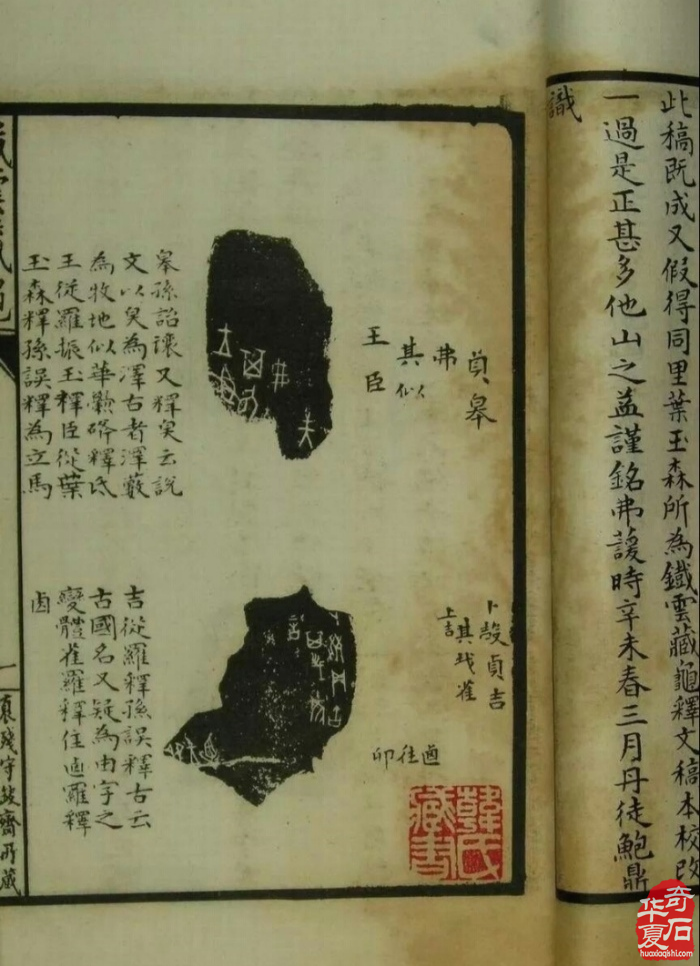 此稿既成又假得同里葉玉森所為鐵雲藏龜釋文稿本校改
一過是正甚多他山之益謹銘弗諼時辛未春三月丹徒鮑鼎
識
貞皋
弗
其似
王臣
皋孫詒讓又釋臭云說
文以臭為澤古者澤藪
為牧地似華學涑釋氐
王從羅振玉釋臣從葉
玉森釋孫誤釋為立馬
卜㱿貞吉
其𢦏雀
上吉
卣往
卯
吉從羅釋孫誤釋古云
古國名又疑為由字之
變體雀羅釋往卣羅釋
卣
抱殘守缺齋所藏
韓氏藏書
奇石
华夏
huaxiaqishi.com